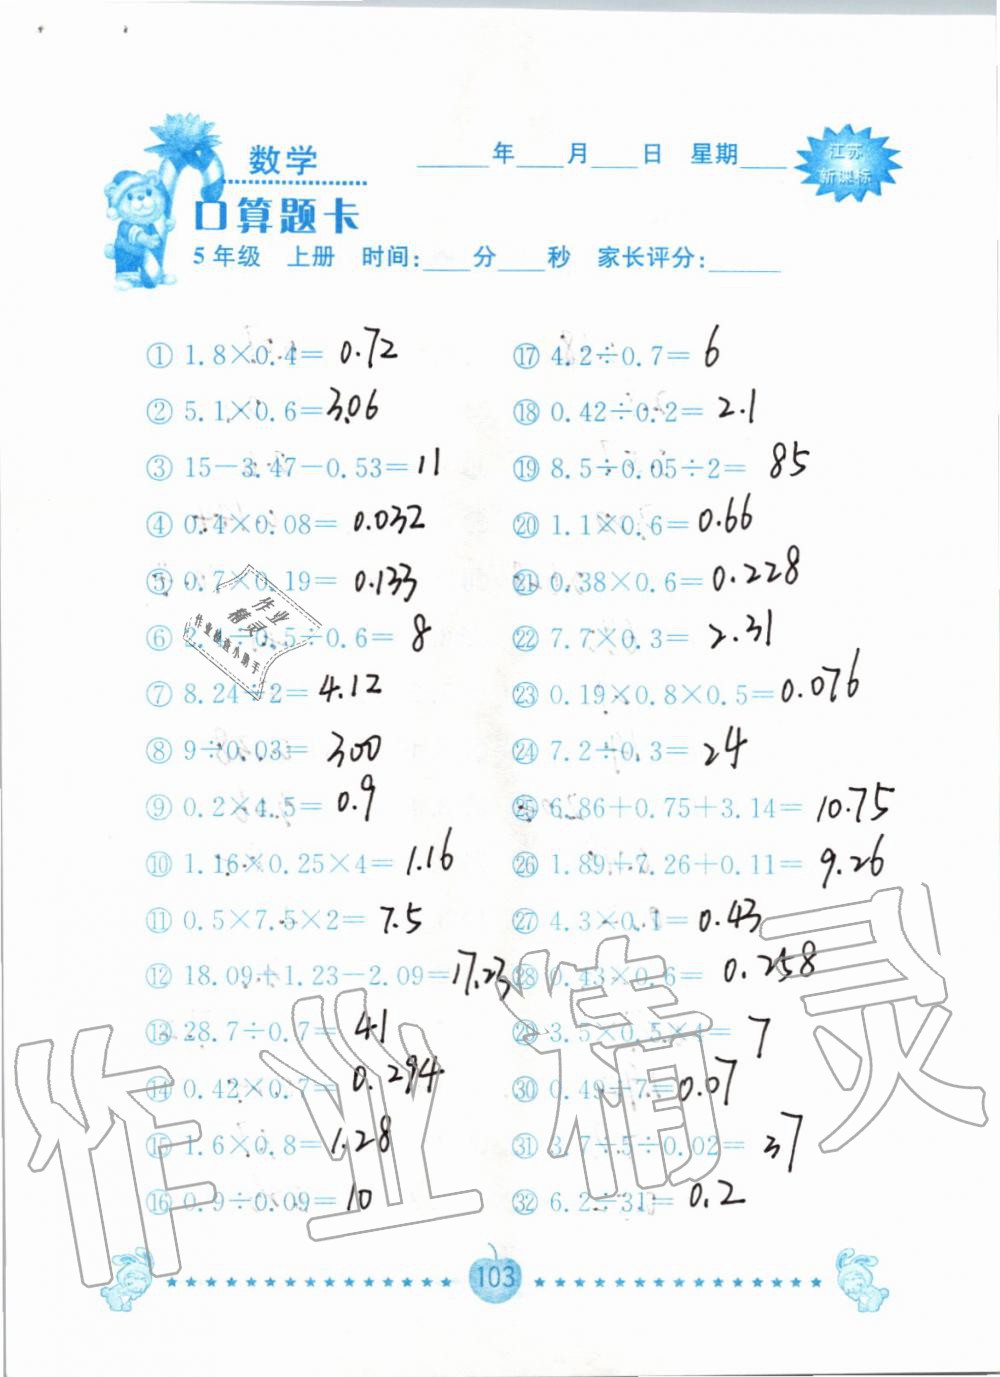 数学
____年____月____日 星期____
江苏
新课标
口算题卡
5年级 上册 时间:____分____秒 家长评分:____
① 1.8×0.4= 0.72
② 5.1×0.6= 3.06
③ 15-3.47-0.53= 11
④ 0.4×0.08= 0.032
⑤ 0.7×0.19= 0.133
⑥ 2. ÷0.5÷0.6= 8
⑦ 8.24÷2= 4.12
⑧ 9÷0.03= 300
⑨ 0.2×4.5= 0.9
⑩ 1.16×0.25×4= 1.16
⑪ 0.5×7.5×2= 7.5
⑫ 18.09+1.23-2.09= 17.23
⑬ 28.7÷0.7= 41
⑭ 0.42×0.7= 0.294
⑮ 1.6×0.8= 1.28
⑯ 0.9÷0.09= 10
⑰ 4.2÷0.7= 6
⑱ 0.42÷0.2= 2.1
⑲ 8.5÷0.05÷2= 85
⑳ 1.1×0.6= 0.66
㉑ 0.38×0.6= 0.228
㉒ 7.7×0.3= 2.31
㉓ 0.19×0.8×0.5= 0.076
㉔ 7.2÷0.3= 24
㉕ 6.86+0.75+3.14= 10.75
㉖ 1.89+7.26+0.11= 9.26
㉗ 4.3×0.1= 0.43
㉘ 0.43×0.6= 0.258
㉙ 3.5×0.5×4= 7
㉚ 0.49÷7= 0.07
㉛ 3.7÷5÷0.02= 37
㉜ 6.2÷31= 0.2
作业
精灵
作业检查小助手
作业精灵
103